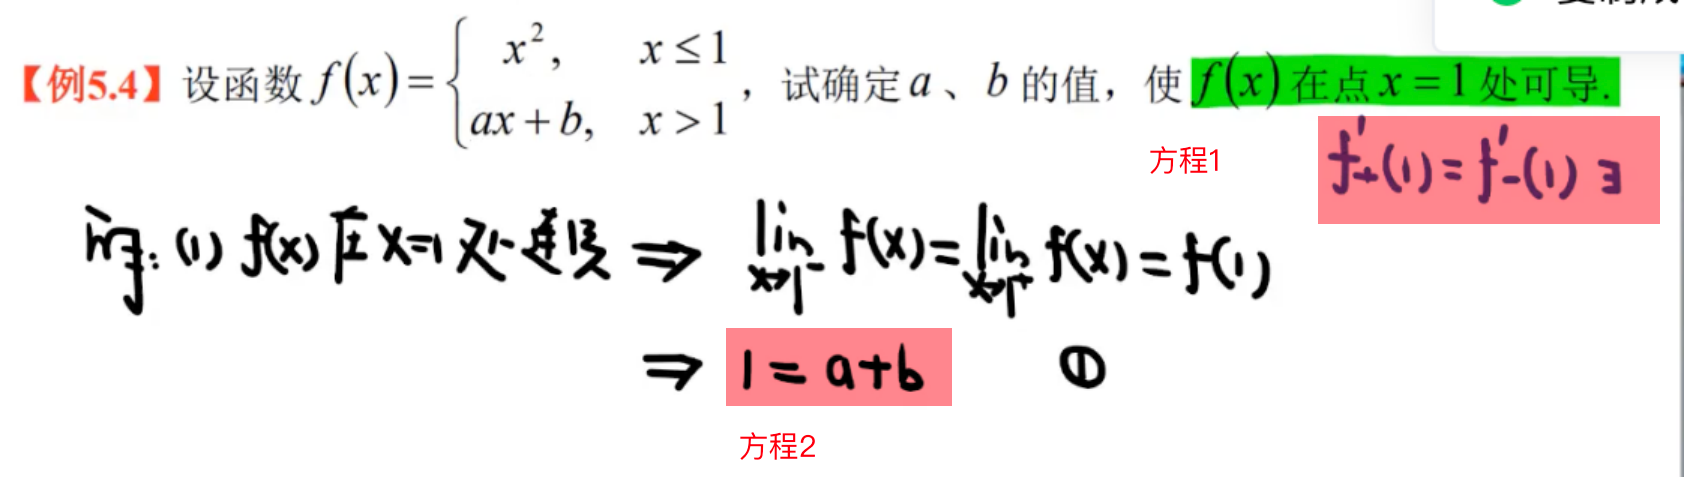 【例5.4】设函数 f(x) = { x², x ≤ 1 ; ax + b, x > 1 ，试确定 a 、 b 的值，使 f(x) 在点 x = 1 处可导.
方程1
f'₊(1) = f'₋(1) ∃
(1) f(x) 在 x=1 处连续 ⇒ lim_{x→1⁻} f(x) = lim_{x→1⁺} f(x) = f(1)
⇒ 1 = a+b ①
方程2